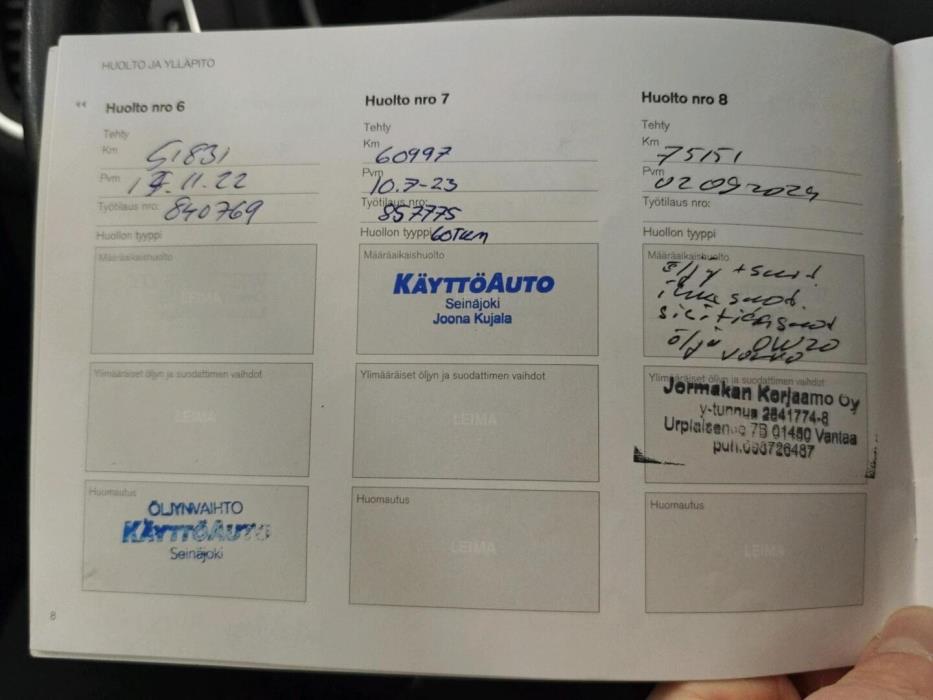 HUOLTO JA YLLÄPITO
Huolto nro 6
Tehty
Km 51831
Pvm 17.11.22
Työtilaus nro: 840769
Huollon tyyppi
Määräaikaishuolto
LEIMA
Ylimääräiset öljyn ja suodattimen vaihdot
LEIMA
Huomautus
ÖLJYNVAIHTO
KÄYTTÖAUTO
Seinäjoki
8
Huolto nro 7
Tehty
Km 60997
Pvm 10.7-23
Työtilaus nro: 857775
Huollon tyyppi 60TKM
Määräaikaishuolto
KÄYTTÖAUTO
Seinäjoki
Joona Kujala
Ylimääräiset öljyn ja suodattimen vaihdot
LEIMA
Huomautus
LEIMA
Huolto nro 8
Tehty
Km 75151
Pvm 02092024
Työtilaus nro:
Huollon tyyppi
Määräaikaishuolto
öljy + suod.
ilma suod.
öljy 0W20
Ylimääräiset öljyn ja suodattimen vaihdot
Jormakan Korjaamo Oy
y-tunnus 2841774-8
7B 01450 Vantaa
Huomautus
LEIMA